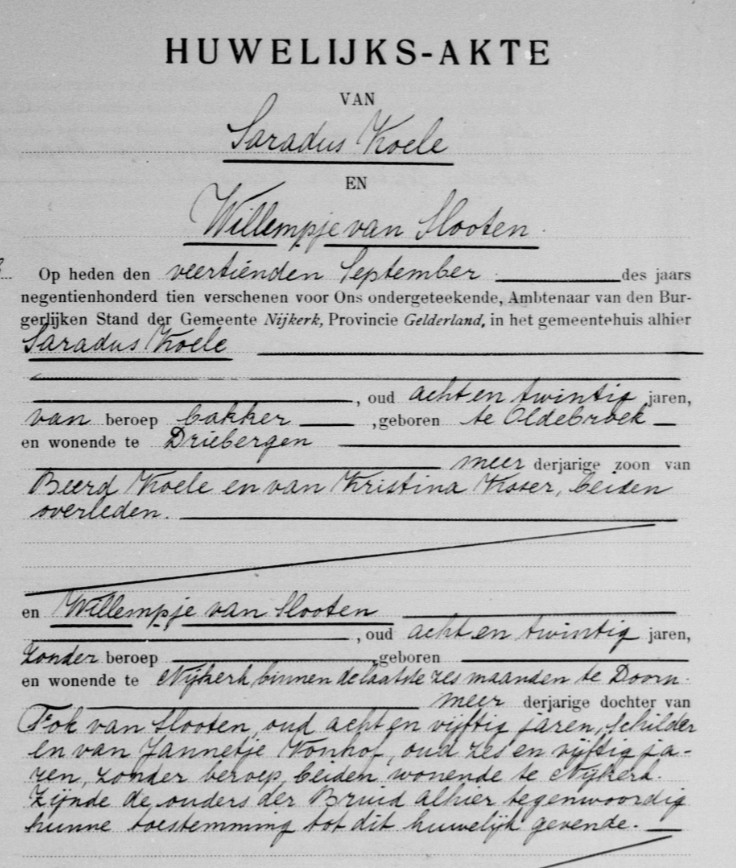 HUWELIJKS-AKTE
VAN
Saradus Koele
EN
Willempje van Slooten.
Op heden den veertienden September des jaars
negentienhonderd tien verschenen voor Ons ondergeteekende, Ambtenaar van den Bur-
gerlijken Stand der Gemeente Nijkerk, Provincie Gelderland, in het gemeentehuis alhier
Saradus Koele
, oud acht en twintig jaren,
van beroep bakker , geboren te Oldebroek
en wonende te Driebergen
meer derjarige zoon van
Beerd Koele en van Kristina Koser, beiden
overleden.
en Willempje van Slooten
, oud acht en twintig jaren,
zonder beroep , geboren
en wonende te Nijkerk, binnen de laatste zes maanden te Doorn.
meer derjarige dochter van
Fok van Slooten, oud acht en vijftig jaren, schilder
en van Jannetje Vonhof, oud zes en vijftig ja-
ren, zonder beroep, beiden wonende te Nijkerk.
Zijnde de ouders der Bruid alhier tegenwoordig
hunne toestemming tot dit huwelijk gevende.